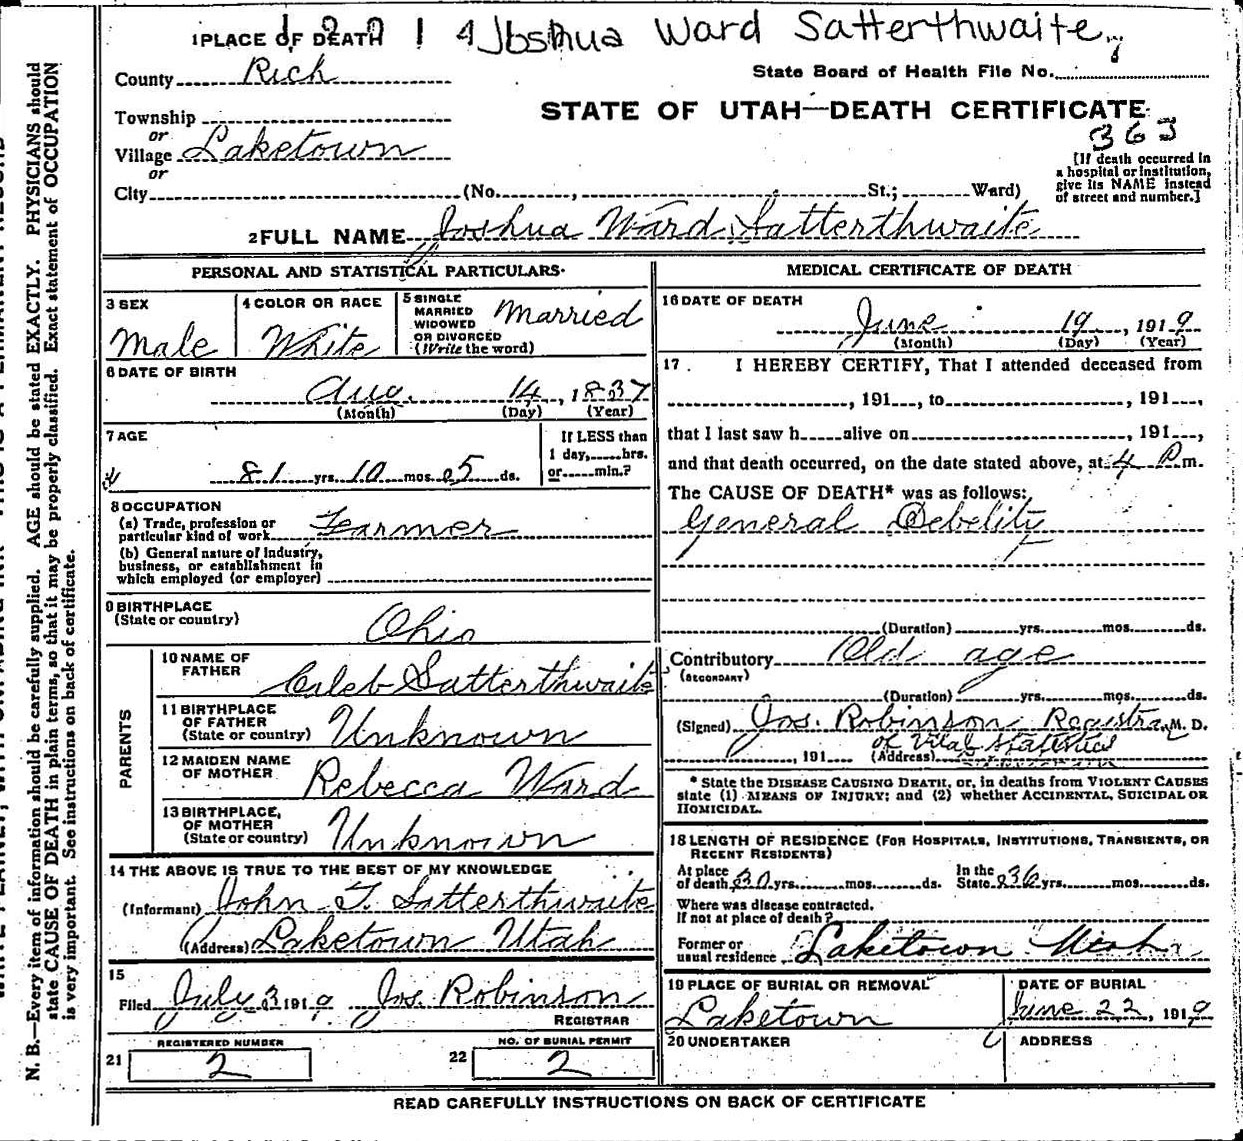 Joshua Ward Satterthwaite
1 PLACE OF DEATH
County Rich
State Board of Health File No.
Township
or
Village Laketown
or
City (No. , St.; Ward)
STATE OF UTAH—DEATH CERTIFICATE
363
[If death occurred in
a hospital or institution,
give its NAME instead
of street and number.]
2 FULL NAME Joshua Ward Satterthwaite
PERSONAL AND STATISTICAL PARTICULARS
3 SEX
Male
4 COLOR OR RACE
White
5 SINGLE
MARRIED
WIDOWED
OR DIVORCED
(Write the word)
Married
6 DATE OF BIRTH
Aug. 14, 1837
(Month) (Day) (Year)
7 AGE
81 yrs. 10 mos. 5 ds.
If LESS than
1 day, hrs.
or min.?
8 OCCUPATION
(a) Trade, profession or
particular kind of work Farmer
(b) General nature of Industry,
business, or establishment in
which employed (or employer)
9 BIRTHPLACE
(State or country)
Ohio
PARENTS
10 NAME OF
FATHER
Caleb Satterthwaite
11 BIRTHPLACE
OF FATHER
(State or country) Unknown
12 MAIDEN NAME
OF MOTHER Rebecca Ward
13 BIRTHPLACE,
OF MOTHER
(State or country) Unknown
14 THE ABOVE IS TRUE TO THE BEST OF MY KNOWLEDGE
(Informant) John T. Satterthwaite
(Address) Laketown Utah
15
Filed July 3 1919 Jos. Robinson
REGISTRAR
REGISTERED NUMBER
21 2
NO. OF BURIAL PERMIT
22 2
MEDICAL CERTIFICATE OF DEATH
16 DATE OF DEATH
June 19, 1919
(Month) (Day) (Year)
17. I HEREBY CERTIFY, That I attended deceased from
, 191 , to , 191 ,
that I last saw h alive on , 191 ,
and that death occurred, on the date stated above, at 4 P.m.
The CAUSE OF DEATH* was as follows:
General Debelity
(Duration) yrs. mos. ds.
Contributory Old age
(SECONDARY)
(Duration) yrs. mos. ds.
(Signed) Jos. Robinson Registrar M. D.
of Vital Statistics
, 191 (Address)
* State the DISEASE CAUSING DEATH, or, in deaths from VIOLENT CAUSES
state (1) MEANS OF INJURY; and (2) whether ACCIDENTAL, SUICIDAL OR
HOMICIDAL.
18 LENGTH OF RESIDENCE (FOR HOSPITALS, INSTITUTIONS, TRANSIENTS, OR
RECENT RESIDENTS)
At place
of death 30 yrs. mos. ds.
In the
State 36 yrs. mos. ds.
Where was disease contracted,
If not at place of death?
Former or
usual residence Laketown Utah
19 PLACE OF BURIAL OR REMOVAL
Laketown
DATE OF BURIAL
June 22, 1919
20 UNDERTAKER
ADDRESS
READ CAREFULLY INSTRUCTIONS ON BACK OF CERTIFICATE
N. B.—Every item of information should be carefully supplied. AGE should be stated EXACTLY. PHYSICIANS should
state CAUSE OF DEATH in plain terms, so that it may be properly classified. Exact statement of OCCUPATION
is very important. See instructions on back of certificate.